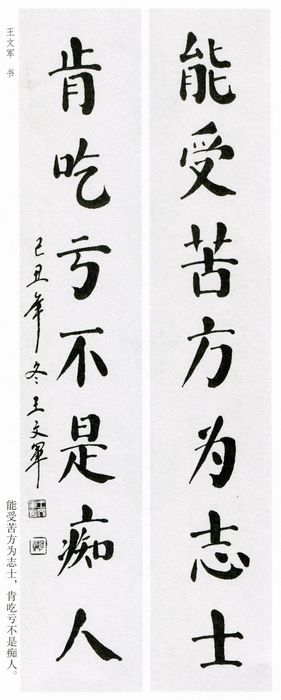 王文军 书
能受苦方为志士
肯吃亏不是痴人
己丑年冬王文军
能受苦方为志士，肯吃亏不是痴人。